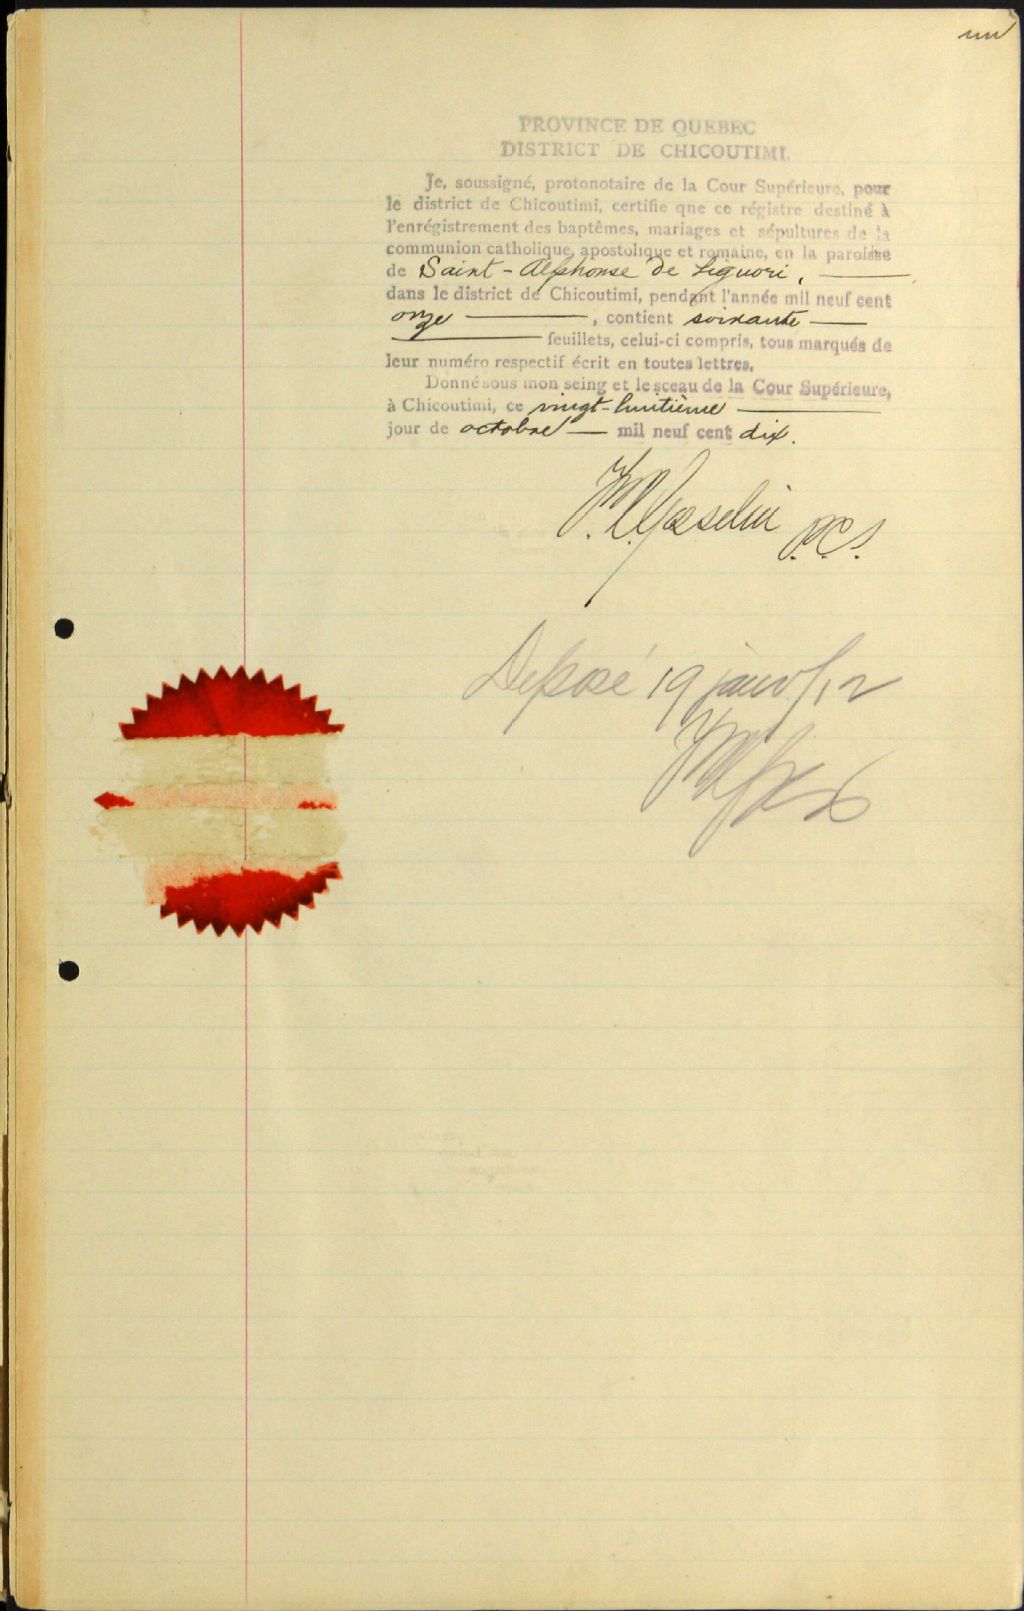 un
PROVINCE DE QUEBEC
DISTRICT DE CHICOUTIMI.
Je, soussigné, protonotaire de la Cour Supérieure, pour
le district de Chicoutimi, certifie qne ce régistre destiné à
l'enrégistrement des baptêmes, mariages et sépultures de la
communion catholique, apostolique et romaine, en la paroisse
de Saint-Alphonse de Liguori,
dans le district de Chicoutimi, pendant l'année mil neuf cent
onze, contient soixante
feuillets, celui-ci compris, tous marqués de
leur numéro respectif écrit en toutes lettres.
Donné sous mon seing et le sceau de la Cour Supérieure,
à Chicoutimi, ce vingt-huitième
jour de octobre mil neuf cent dix.
Gosselin P.C.S.
Déposé 19 janv/12